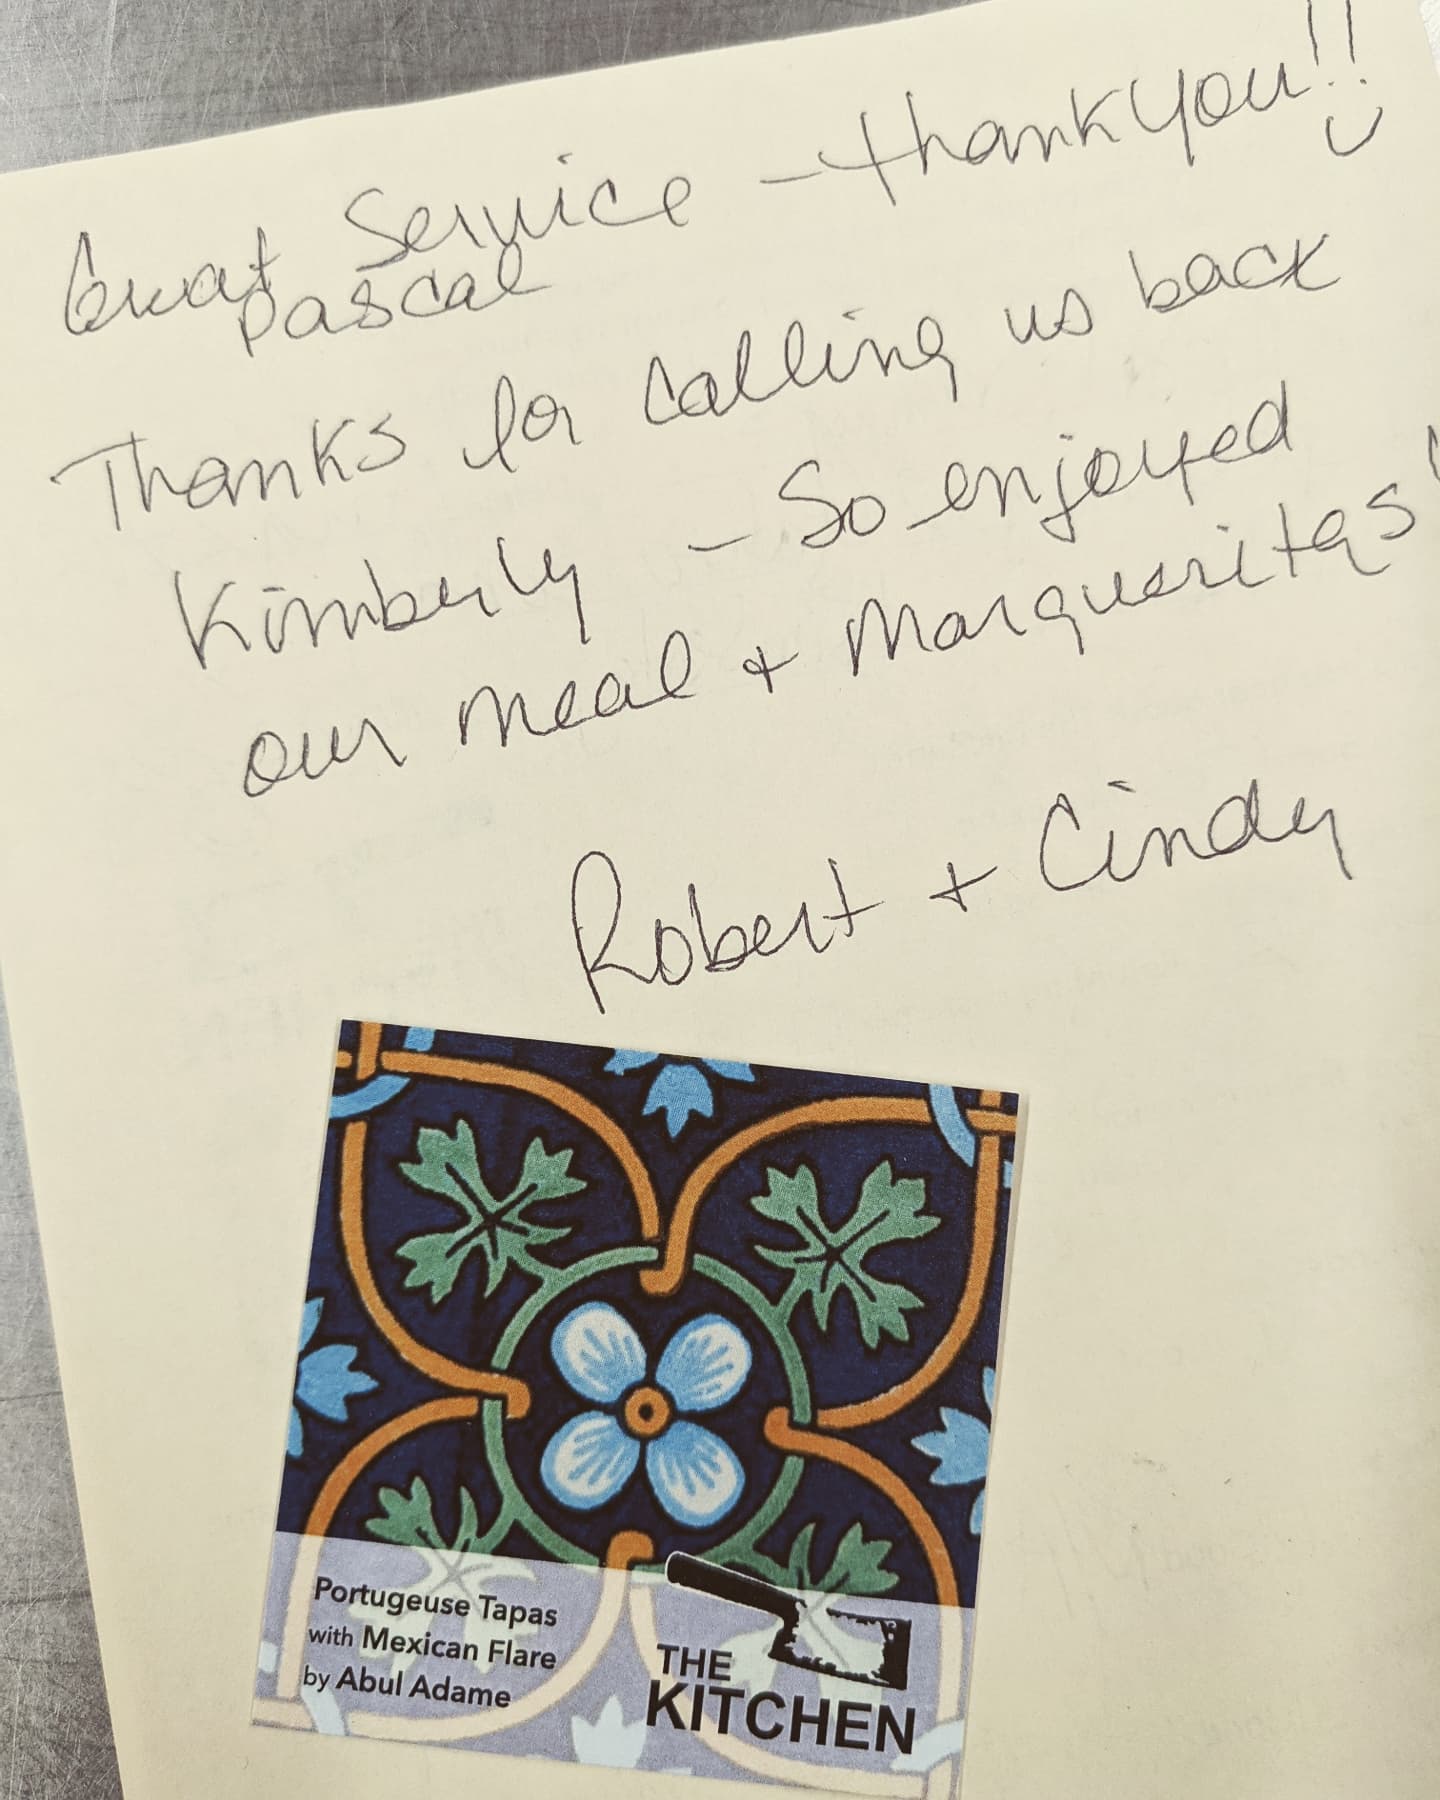 Great Service - thank you!!
Pascal
Thanks for calling us back
Kimberly - So enjoyed
our meal + Margueritas!
Robert + Cindy
Portugeuse Tapas
with Mexican Flare
by Abul Adame
THE
KITCHEN